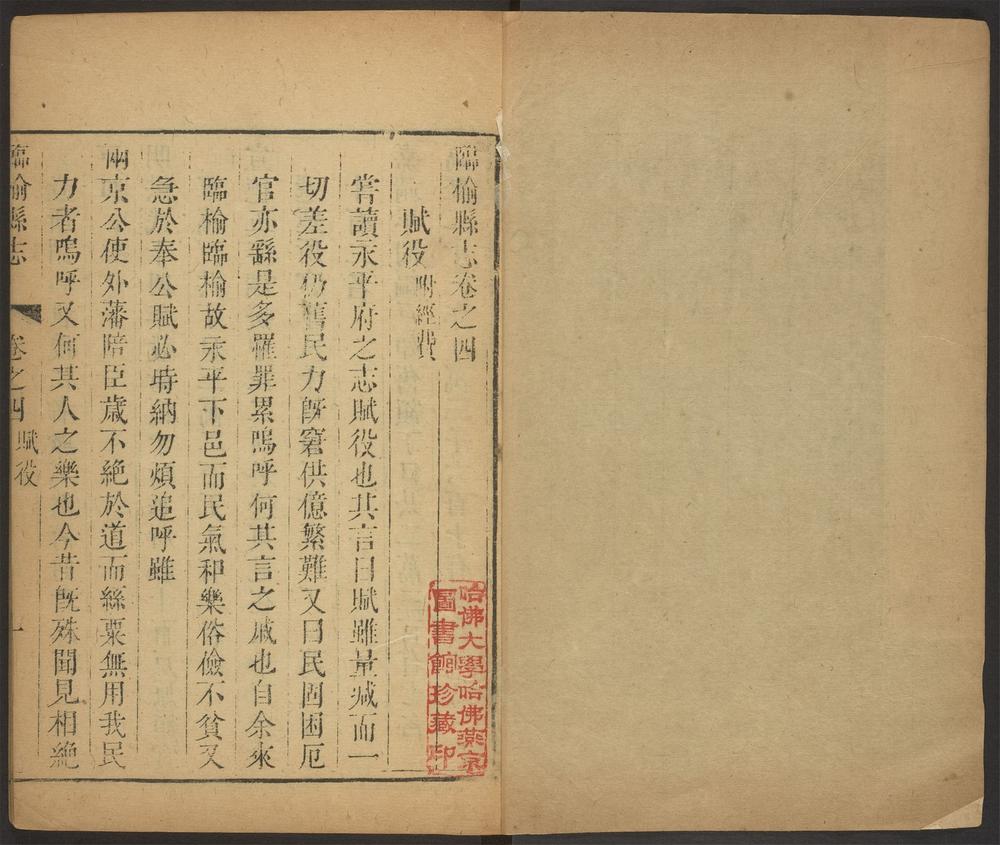 臨榆縣志卷之四
賦役附經費
嘗讀永平府之志賦役也其言曰賦雖量減而一
切差役仍舊民力旣窘供億繁難又曰民固困厄
官亦繇是多罹罪累嗚呼何其言之戚也自余來
臨榆臨榆故永平下邑而民氣和樂俗儉不貧又
急於奉公賦必時納勿煩追呼雖
兩京公使外藩陪臣歲不絶於道而絲粟無用我民
力者嗚呼又何其人之樂也今昔旣殊聞見相絶
臨榆縣志 卷之四 賦役 一
哈佛大學哈佛燕京
圖書館珍藏印